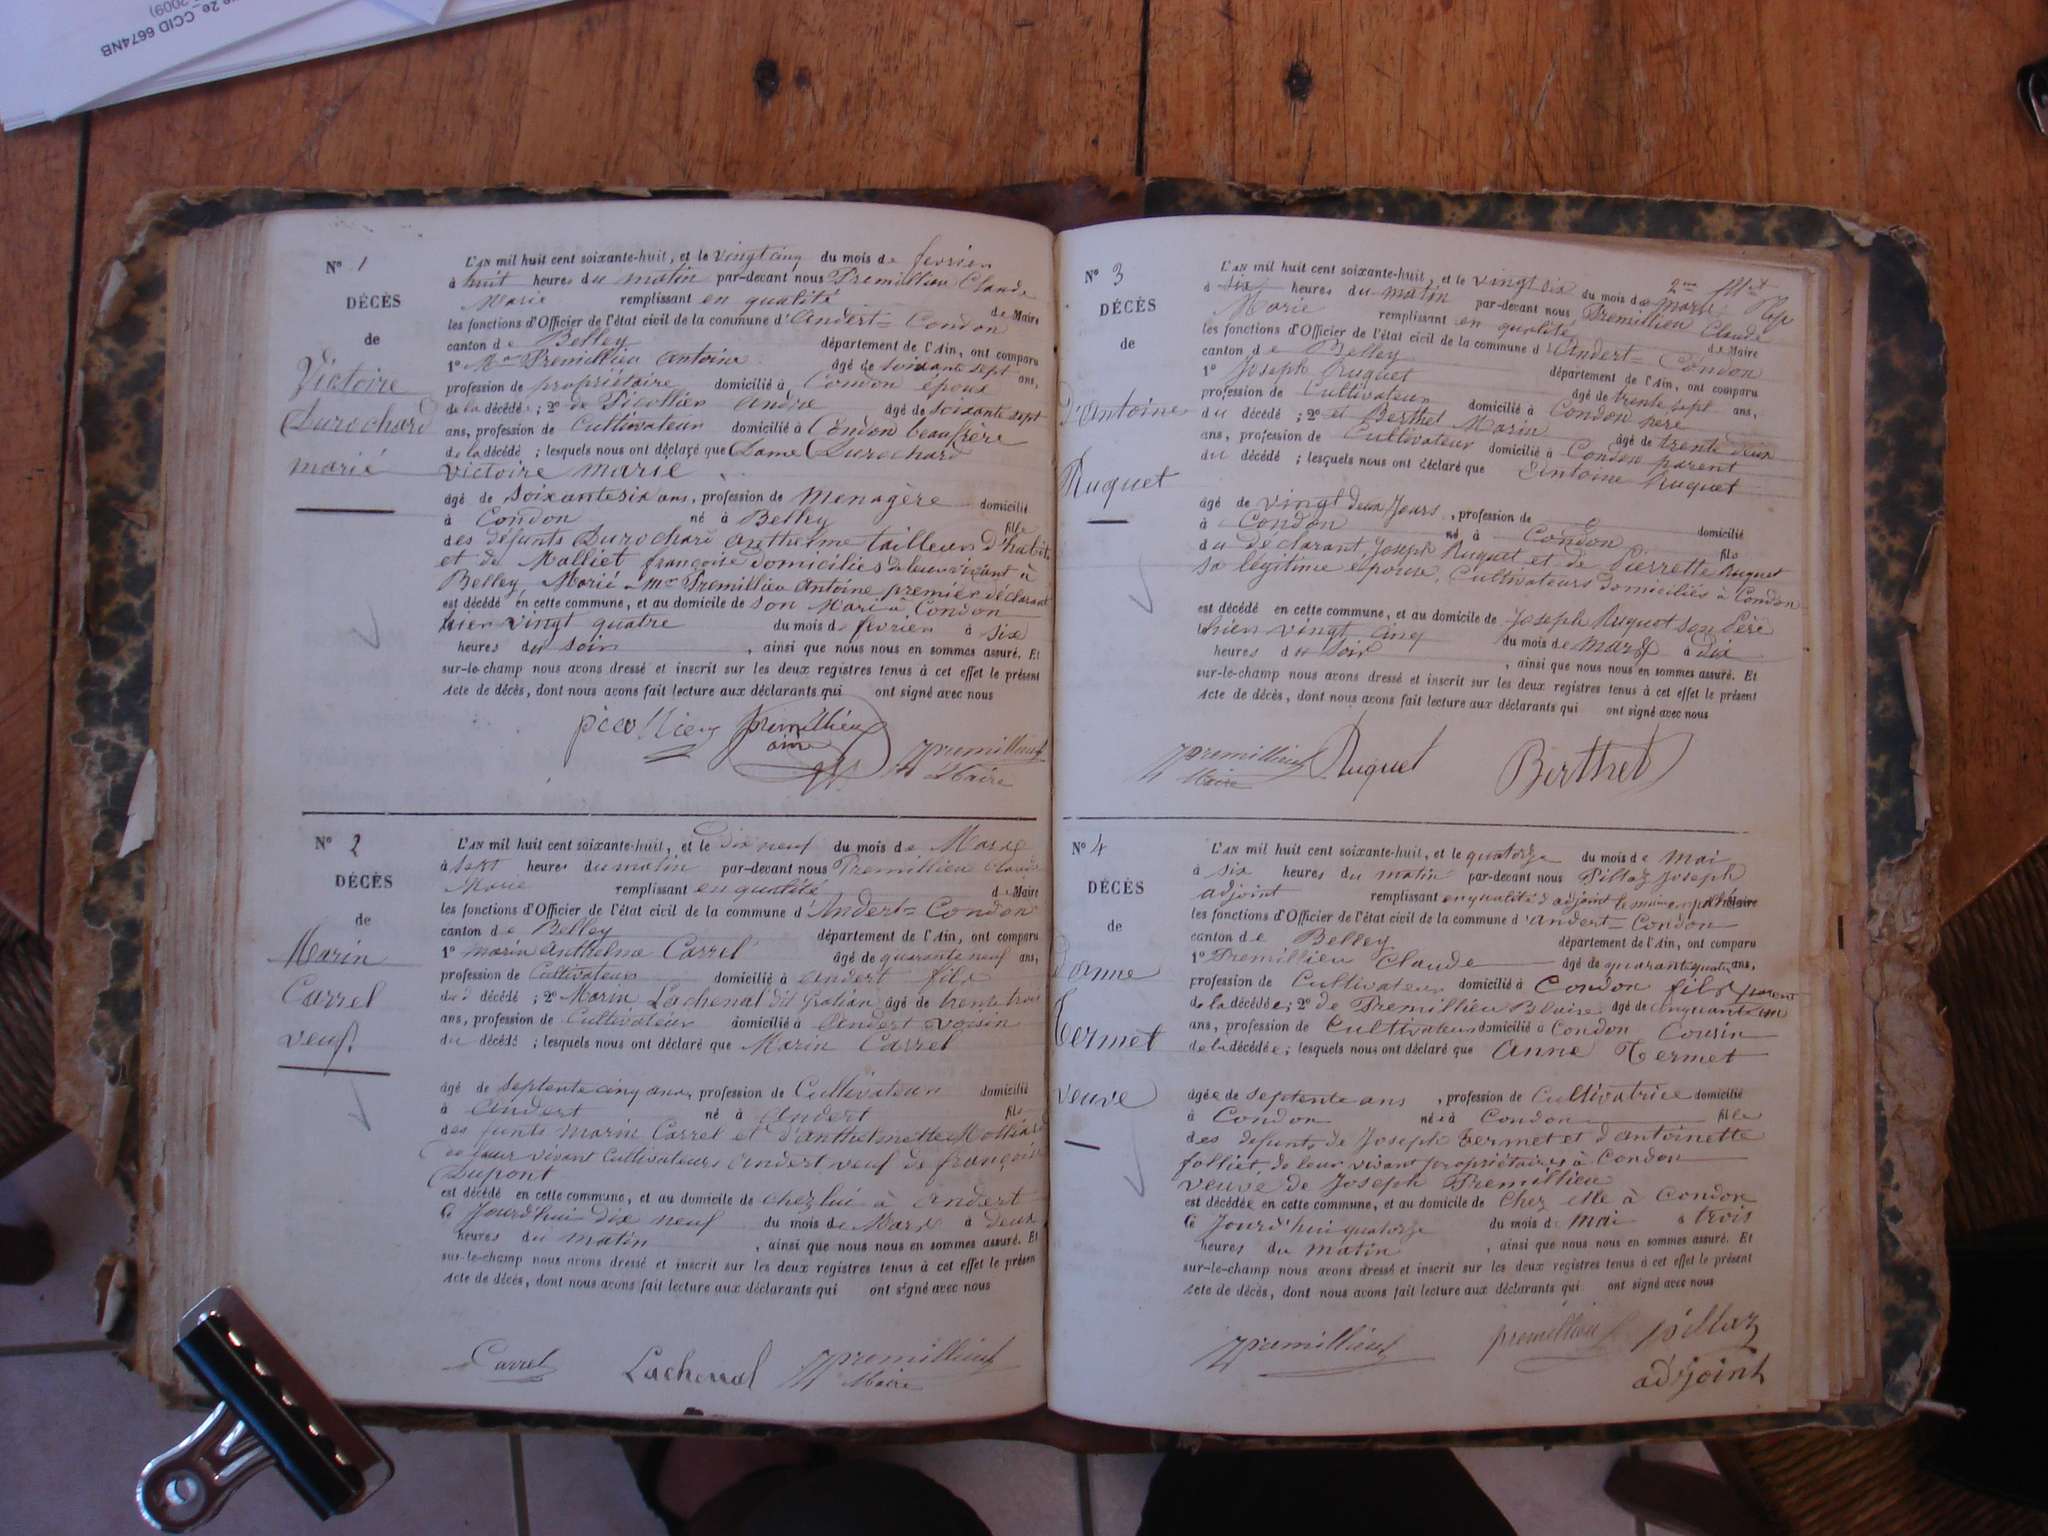 e 2e - CCID 6674NB
2009)
N° 1
DÉCÈS
de
Victoire
Durochard
marié
L'AN mil huit cent soixante-huit, et le vingt cinq du mois de fevrier
à huit heures du matin par-devant nous Premillieu Claude
Marie remplissant en qualité de Maire
les fonctions d'Officier de l'état civil de la commune d'Andert=Condon
canton de Belley département de l'Ain, ont comparu
1° Mr Premillieu Antoine âgé de soixante sept ans,
profession de propriétaire domicilié à Condon époux
de la décédé ; 2° de Picollier André âgé de soixante sept
ans, profession de Cultivateur domicilié à Condon beaufrère
de la décédé ; lesquels nous ont déclaré que Dame Durochard
Victoire Marie
âgé de soixante six ans, profession de Menagère domicilié
à Condon né à Belley fille
des défunts Durochard Anthelme tailleur d'habits
et de Malliet françoise domiciliés de leur vivant à
Belley, Marié a mr Premillieu Antoine premier déclarant
est décédé en cette commune, et au domicile de son Mari à Condon
hier vingt quatre du mois de fevrier à six
heures du soir , ainsi que nous nous en sommes assuré. Et
sur-le-champ nous avons dressé et inscrit sur les deux registres tenus à cet effet le présent
Acte de décès, dont nous avons fait lecture aux déclarants qui ont signé avec nous
picollier premillieu
aine
premillieu
Maire
N° 2
DÉCÈS
de
Marin
Carrel
veuf.
L'AN mil huit cent soixante-huit, et le dix neuf du mois de Mars
à sept heures du matin par-devant nous Premillieu Claude
Marie remplissant en qualité de Maire
les fonctions d'Officier de l'état civil de la commune d'Andert=Condon
canton de Belley département de l'Ain, ont comparu
1° Marin Anthelme Carrel âgé de quarante neuf ans,
profession de Cultivateur domicilié à Andert fils
du décédé ; 2° Marin Lachenal dit Gratian âgé de trente trois
ans, profession de Cultivateur domicilié à Andert voisin
du décédé ; lesquels nous ont déclaré que Marin Carrel
âgé de septente cinq ans, profession de Cultivateur domicilié
à Andert né à Andert fils
des funts Marin Carrel et d'anthelmette
de leur vivant Cultivateurs Andert veuf de françoise
Dupont
est décédé en cette commune, et au domicile de chez lui à Andert
Ce Jourd'hui dix neuf du mois de Mars à deux
heures du matin , ainsi que nous nous en sommes assuré. Et
sur-le-champ nous avons dressé et inscrit sur les deux registres tenus à cet effet le présen
Acte de décès, dont nous avons fait lecture aux déclarants qui ont signé avec nous
Carrel Lachenal premillieu
Maire
N° 3
DÉCÈS
de
d'Antoine
Ruquet
2me
L'AN mil huit cent soixante-huit, et le vingt six du mois de Mars
à six heures du matin par-devant nous Premillieu Claude
Marie remplissant en qualité de Maire
les fonctions d'Officier de l'état civil de la commune d'Andert=Condon
canton de Belley département de l'Ain, ont comparu
1° Joseph Ruquet âgé de trente sept ans,
profession de Cultivateur domicilié à Condon père
du décédé ; 2° et Berthet Marin âgé de trente deux
ans, profession de Cultivateur domicilié à Condon parent
du décédé ; lesquels nous ont déclaré que Antoine Ruquet
âgé de vingt deux Jours , profession de domicilié
à Condon né à Condon fils
du déclarant, Joseph Ruquet et de Pierrette Ruquet
sa légitime épouse, Cultivateurs domiciliés à Condon
est décédé en cette commune, et au domicile de Joseph Ruquet son Père
hier vingt cinq du mois de mars à dix
heures du soir , ainsi que nous nous en sommes assuré. Et
sur-le-champ nous avons dressé et inscrit sur les deux registres tenus à cet effet le présent
Acte de décès, dont nous avons fait lecture aux déclarants qui ont signé avec nous
premillieu Ruquet Berthet
Maire
N° 4
DÉCÈS
de
d'anne
Termet
veuve
L'AN mil huit cent soixante-huit, et le quatorze du mois de Mai
à six heures du matin par-devant nous Pillaz Joseph
adjoint remplissant en qualité d'adjoint le maire Maire
les fonctions d'Officier de l'état civil de la commune d'Andert=Condon
canton de Belley département de l'Ain, ont comparu
1° Premillieu Claude âgé de quarante quatre ans,
profession de Cultivateur domicilié à Condon fils parent
de la décédée ; 2° de Premillieu Blaise âgé de cinquante un
ans, profession de Cultivateur domicilié à Condon Cousin
de la décédée ; lesquels nous ont déclaré que Anne Termet
âgée de septente ans , profession de Cultivatrice domicilié
à Condon née à Condon fille
des défunts de Joseph Termet et d'Antoinette
folliet de leur vivant propriétaires à Condon
veuve de Joseph Premillieu
est décédée en cette commune, et au domicile de Chez elle à Condon
Ce Jourd'hui quatorze du mois de mai à trois
heures du matin , ainsi que nous nous en sommes assuré. Et
sur-le-champ nous avons dressé et inscrit sur les deux registres tenus à cet effet le présent
Acte de décès, dont nous avons fait lecture aux déclarants qui ont signé avec nous
premillieu premillieu pillaz
adjoint